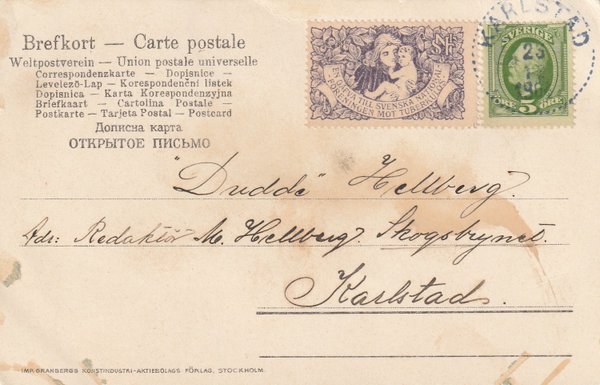 Brefkort — Carte postale
Weltpostverein — Union postale universelle
Correspondenzkarte — Dopisnice —
Levelező-Lap — Korespondenční listek
Dopisnica — Karta Korespondenzyjna
Briefkaart — Cartolina Postale —
Postkarte — Tarjeta Postal — Postcard
Дописна карта
ОТКРЫТОЕ ПИСЬМО
TILL SVENSKA NATIONAL
MOT TUBERKULOS
KARLSTAD
23
SVERIGE
5
ÖRE ÖRE
"Dudde" Hellberg.
Adr: Redaktör M. Hellberg. Skogsbrynet.
Karlstad.
IMP. GRANBERGS KONSTINDUSTRI-AKTIEBOLAGS FÖRLAG, STOCKHOLM.